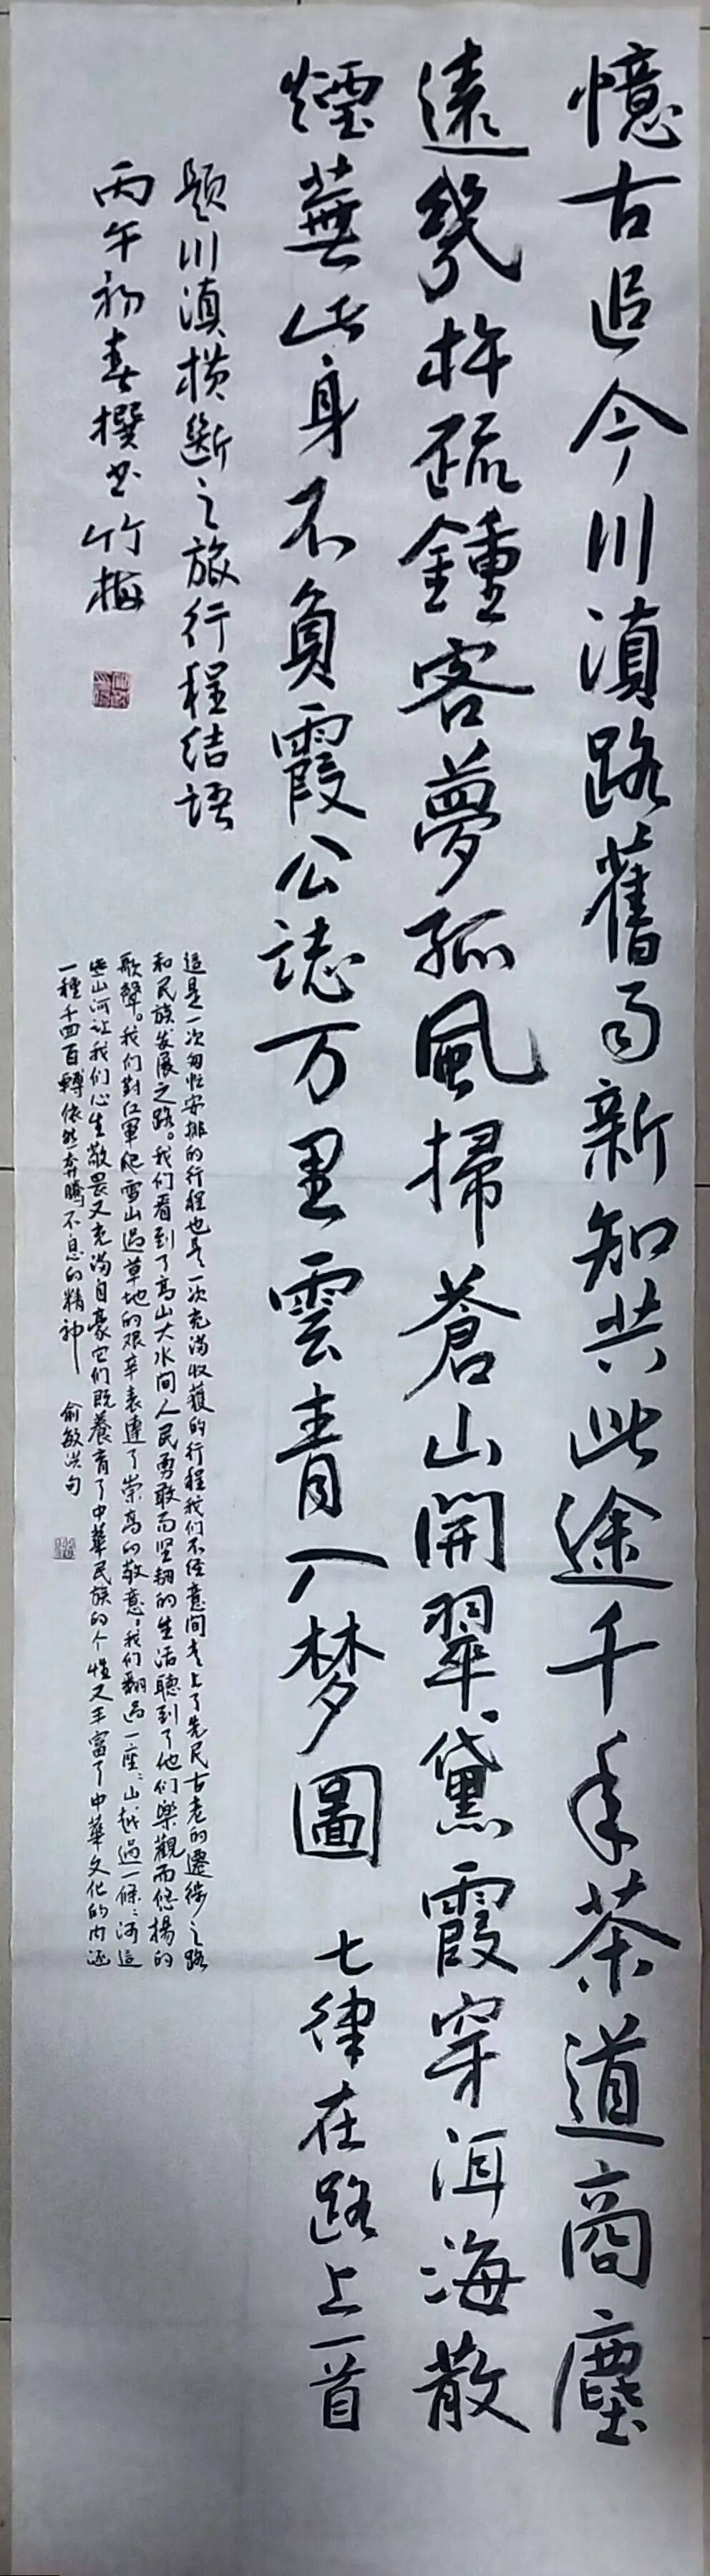 憶古追今川滇路舊雨新知共此途千年茶道商塵
遠幾杵疏鐘客夢孤風掃蒼山開翠黛霞穿洱海散
煙蕪此身不負霞公誌万里雲青入梦圖 七律在路上一首
題川滇横斷之旅行程结語
丙午初春撰书竹梅
這是一次匆忙安排的行程也是一次充满收獲的行程我们不经意間走上了先民古老的遷徙之路
和民族发展之路。我们看到了高山大水间人民勇敢而坚韧的生活聽到了他们樂觀而悠揚的
歌聲。我们對红軍爬雪山過草地的艰辛表達了崇高的敬意。我们翻過一座:山越過一條:河這
些山河让我们心生敬畏又充满自豪它们既養育了中華民族的个性又丰富了中華文化的内涵
一種千回百轉依然奔騰不息的精神 俞敏洪句